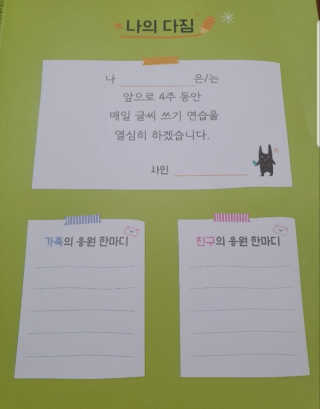 나의 다짐
나 은/는
앞으로 4주 동안
매일 글씨 쓰기 연습을
열심히 하겠습니다.
사인
가족의 응원 한마디
친구의 응원 한마디